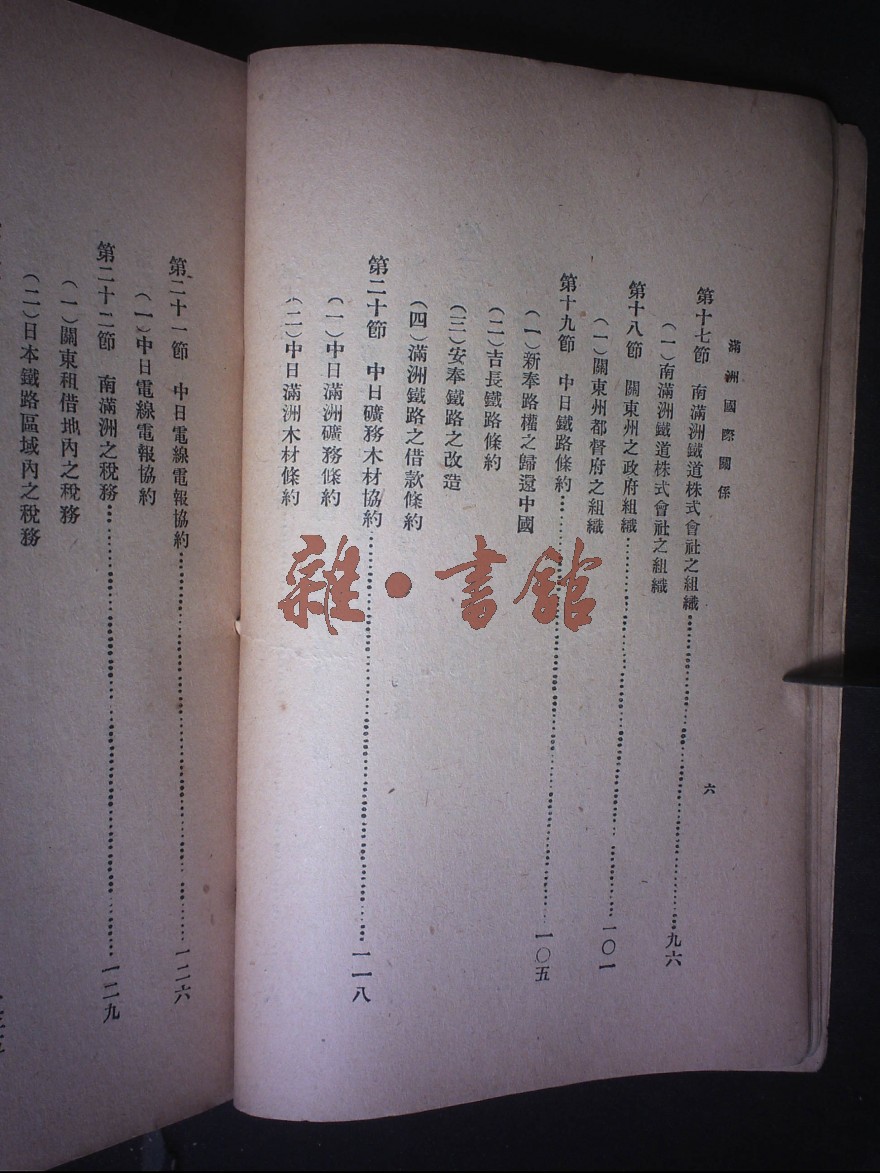 滿洲國際關係
六
第十七節　南滿洲鐵道株式會社之組織……九六
（一）南滿洲鐵道株式會社之組織
第十八節　關東州之政府組織……一〇一
（一）關東州都督府之組織
第十九節　中日鐵路條約……一〇五
（一）新奉路權之歸還中國
（二）吉長鐵路條約
（三）安奉鐵路之改造
（四）滿洲鐵路之借款條約
第二十節　中日礦務木材協約……一一八
（一）中日滿洲礦務條約
（二）中日滿洲木材條約
第二十一節　中日電線電報協約……一二六
（一）中日電線電報協約
第二十二節　南滿洲之稅務……一二九
（一）關東租借地內之稅務
（二）日本鐵路區域內之稅務
雜・書館